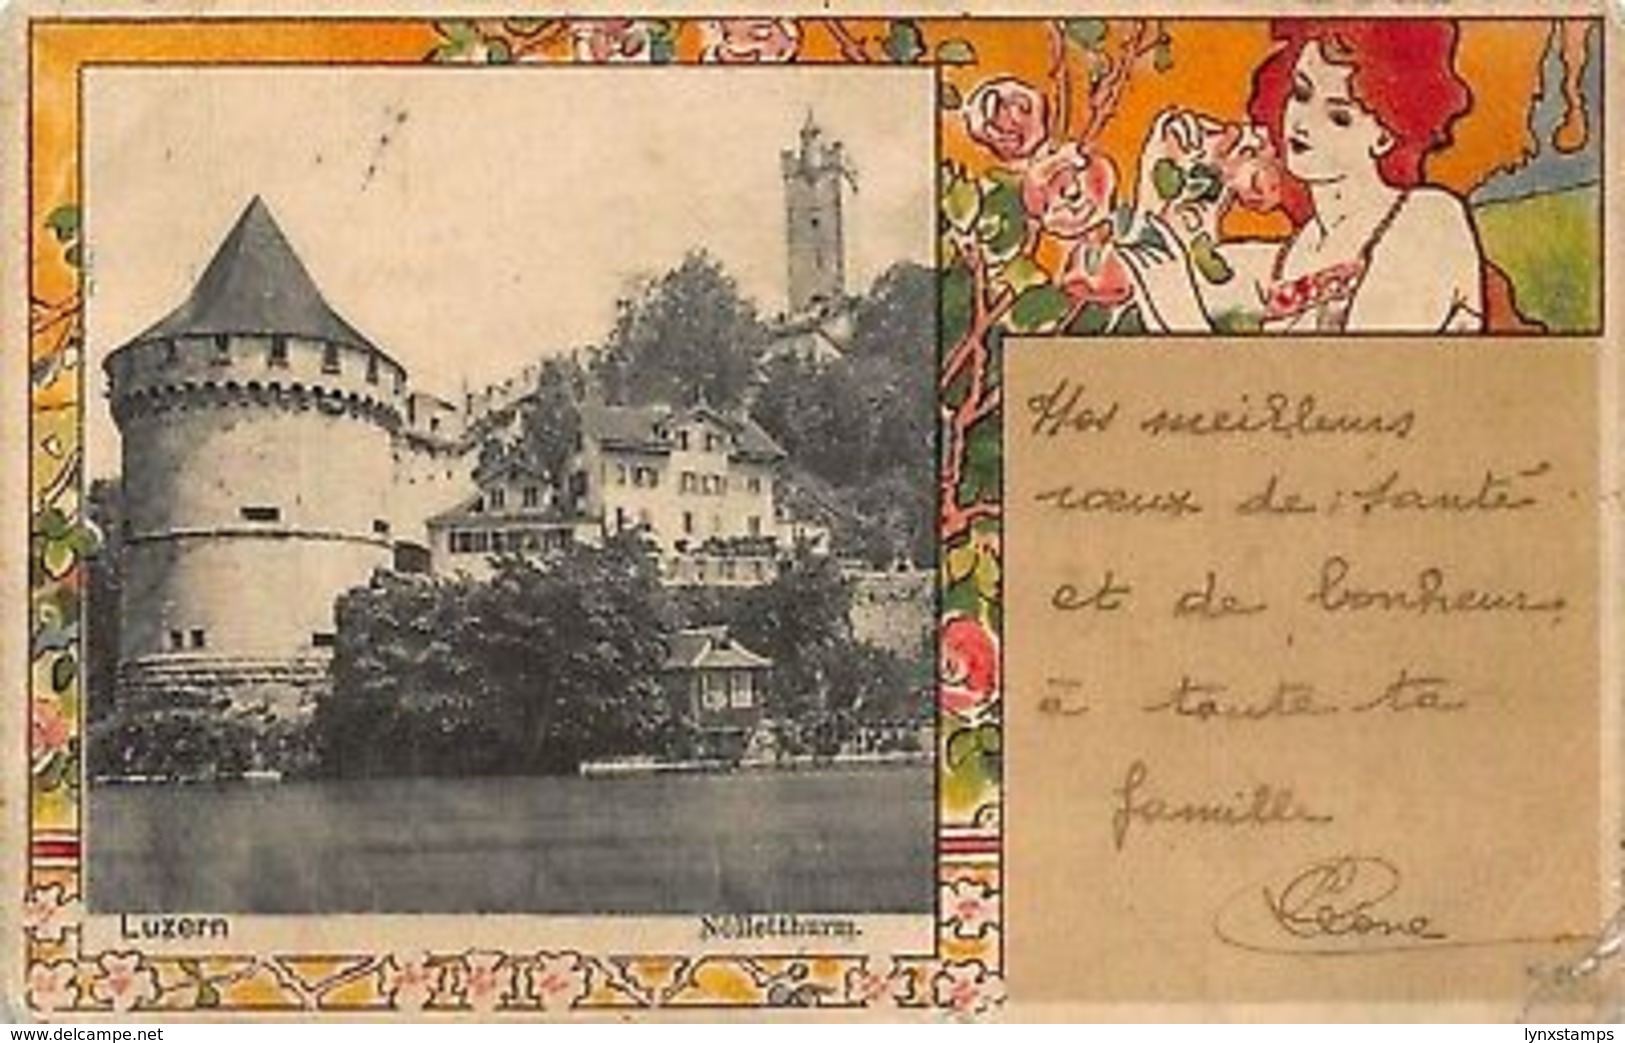 Luzern
Nölletthurm.
Mes meilleurs
vœux de santé
et de bonheur
à toute ta
famille
delcampe.net
lynxstamps